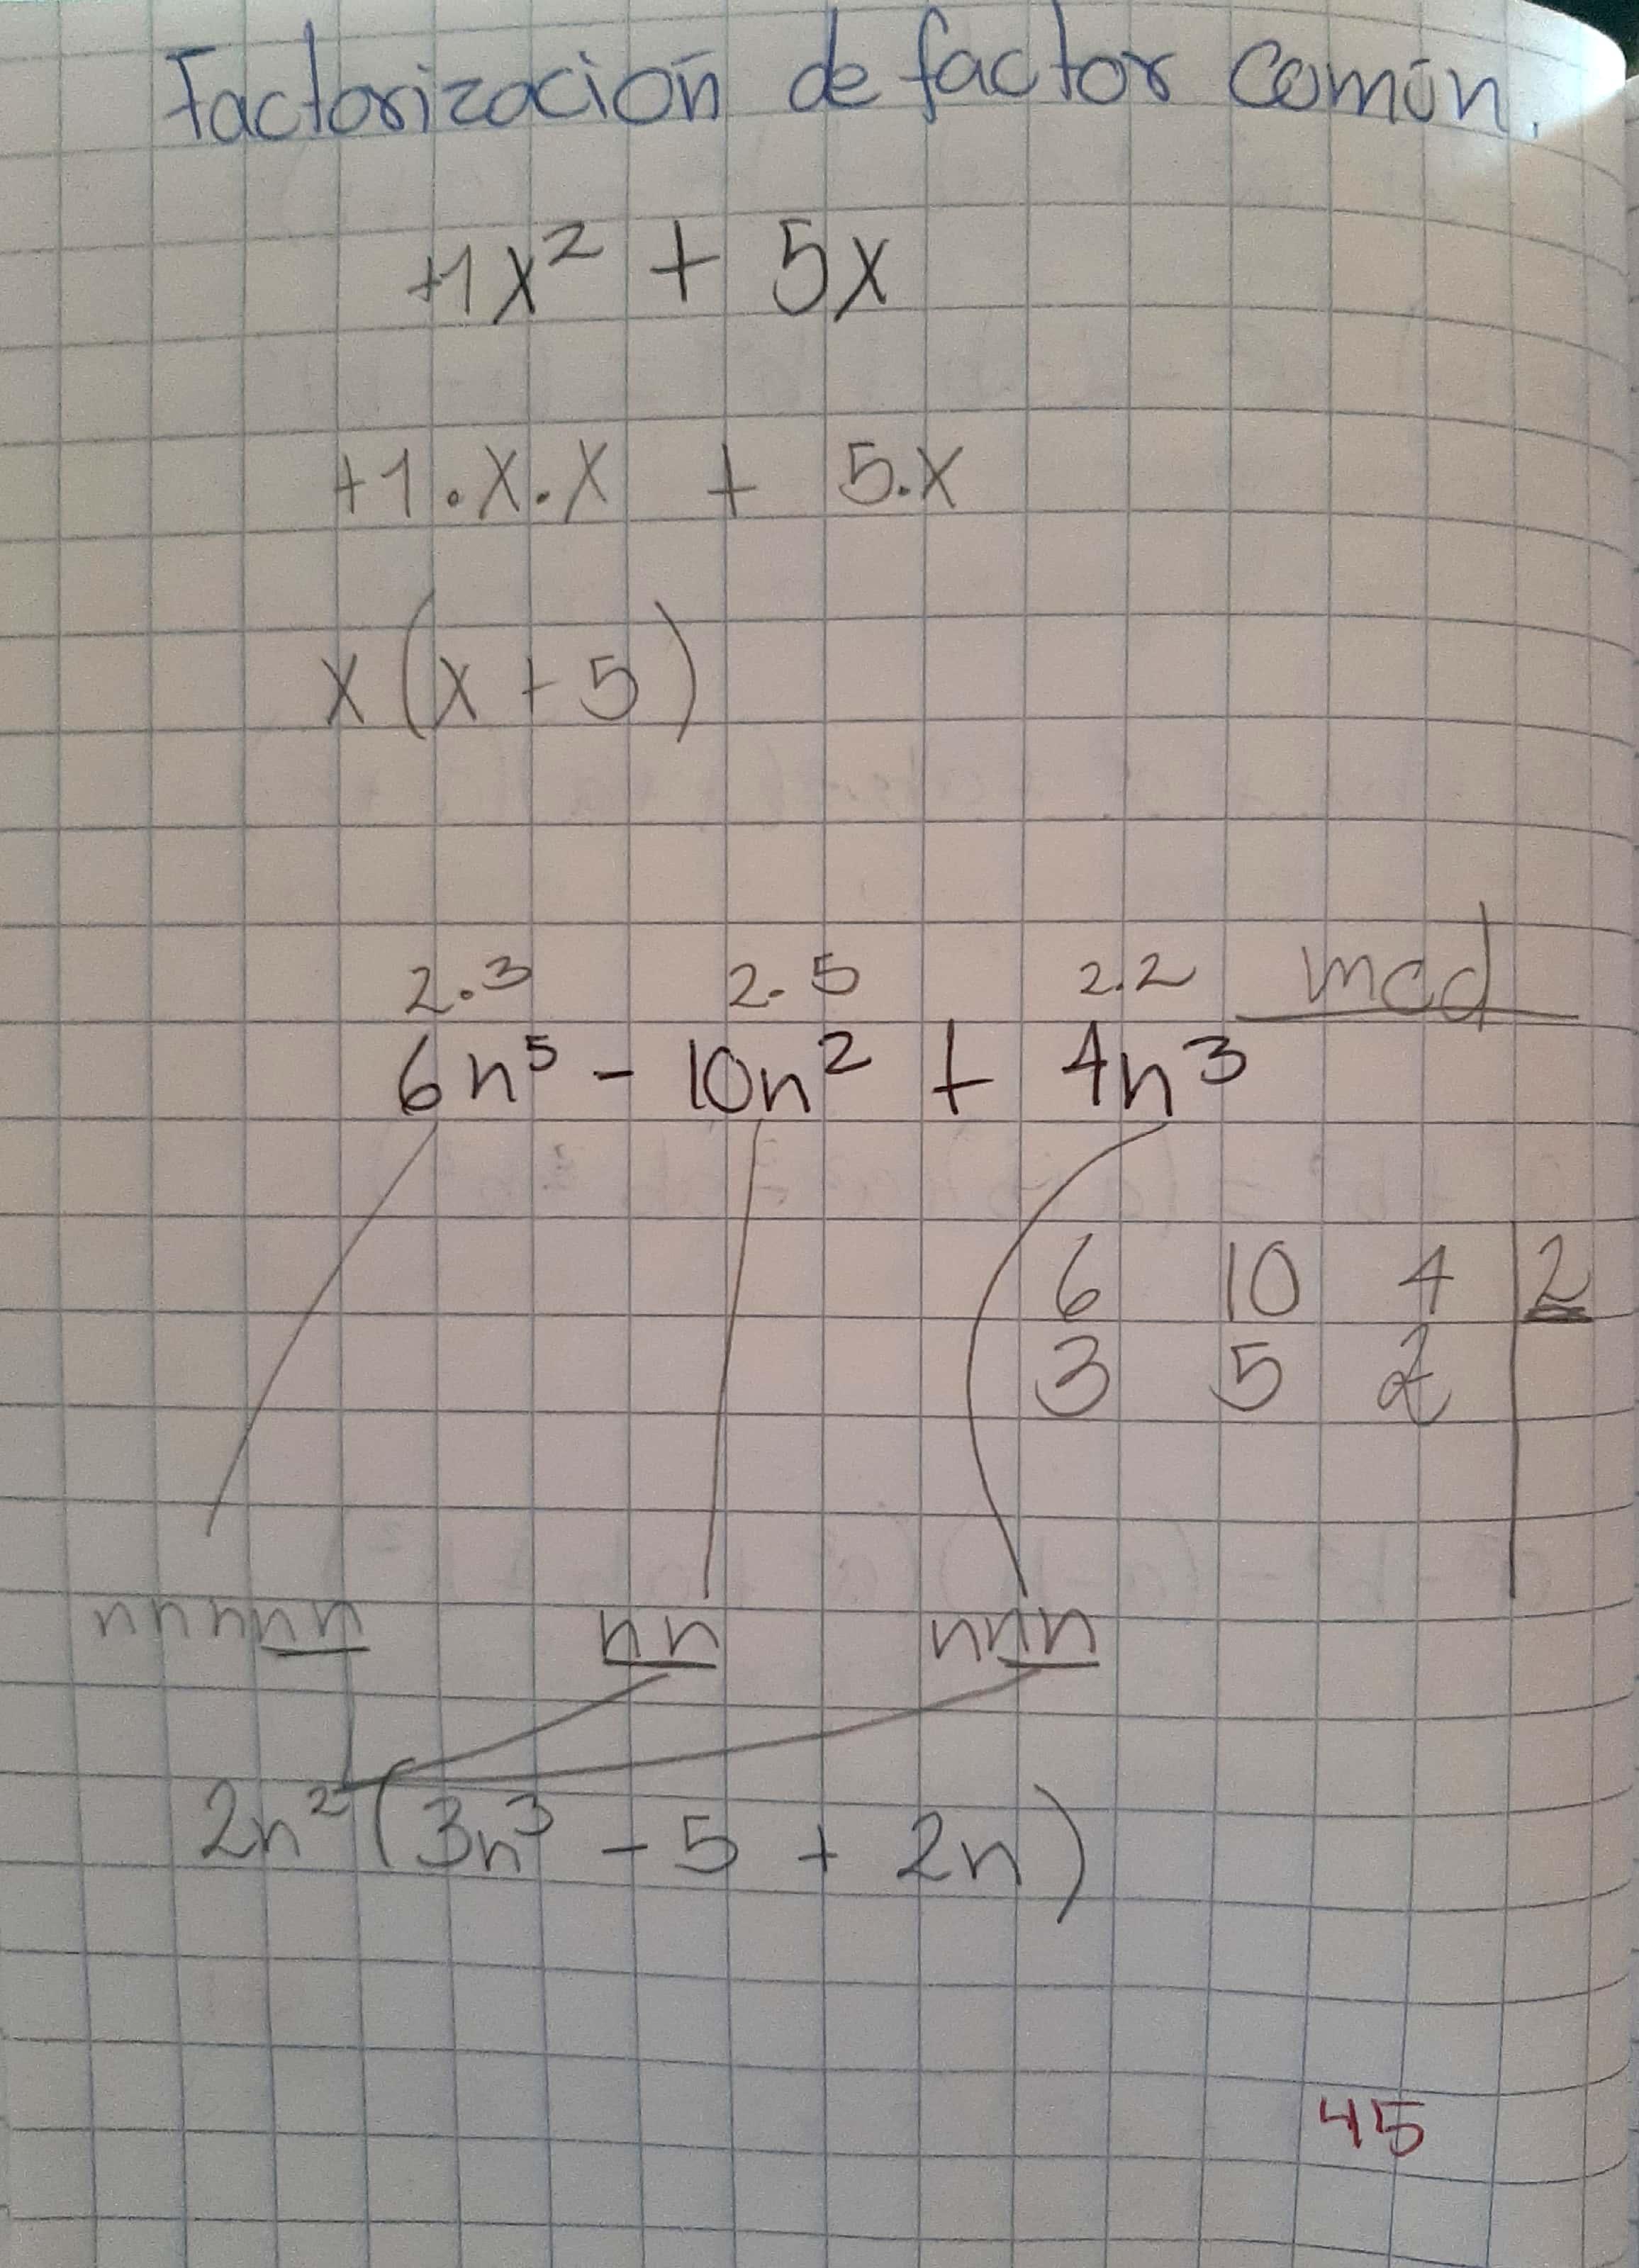 Factorización de factor común.
+1x² + 5x
+1.x.x + 5.x
x(x+5)
2.3 2.5 2.2 mcd
6n⁵ - 10n² + 4n³
6 10 4 | 2
3 5 2
nnnnn nn nnn
2n²(3n³ - 5 + 2n)
45